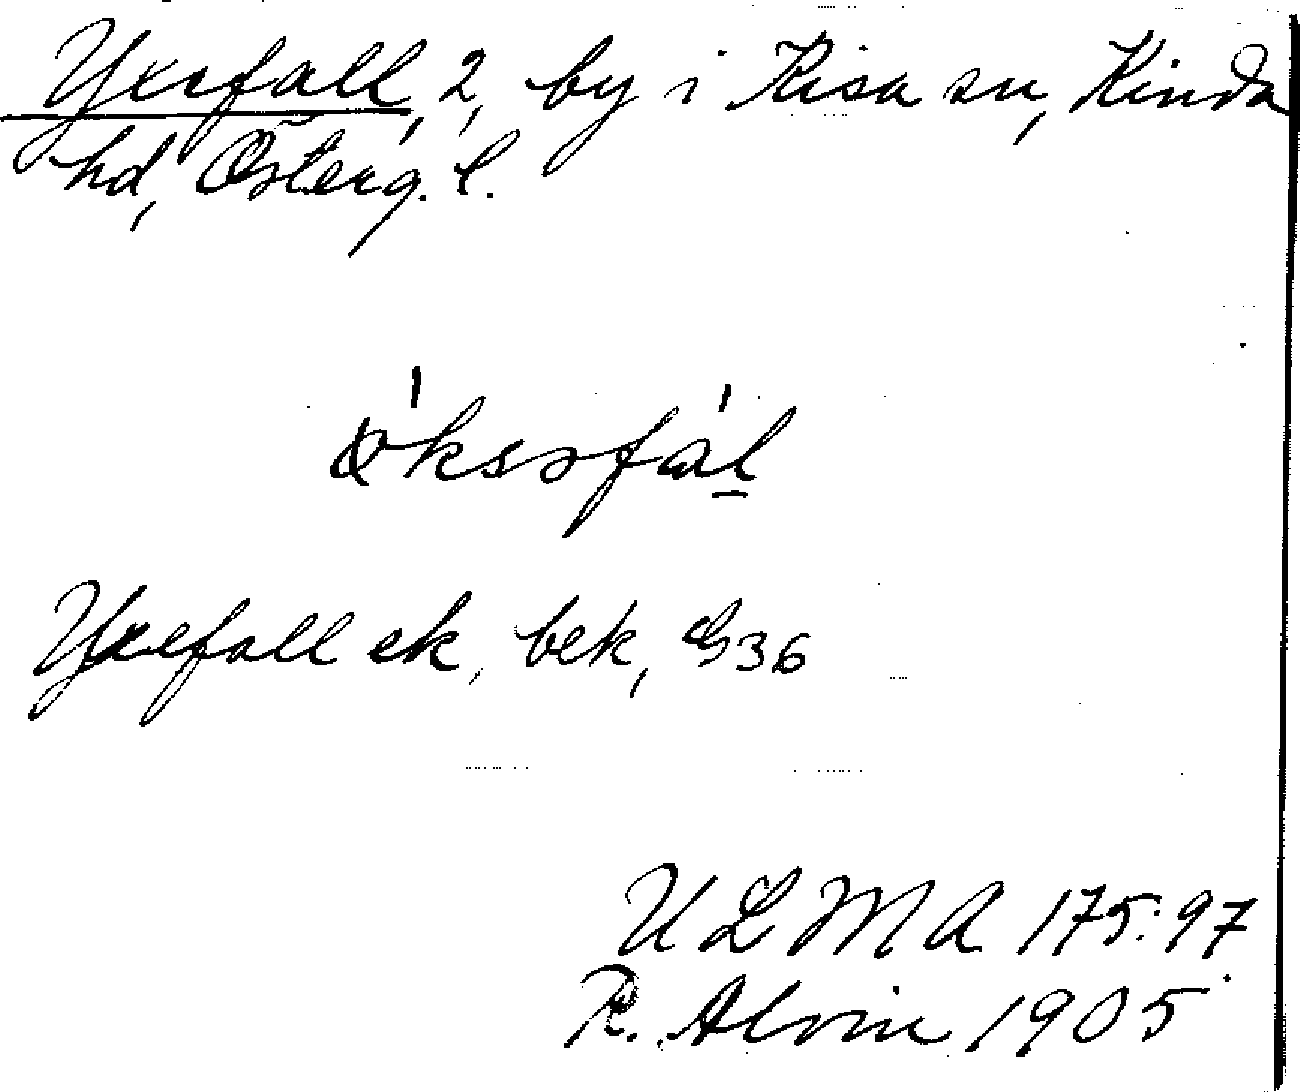 Yxefall, 2, by i Kisa sn, Kinda
hd, Österg. l.
Yxefall ek, bek, G36
U L M A 175:97
R. Alvin 1905